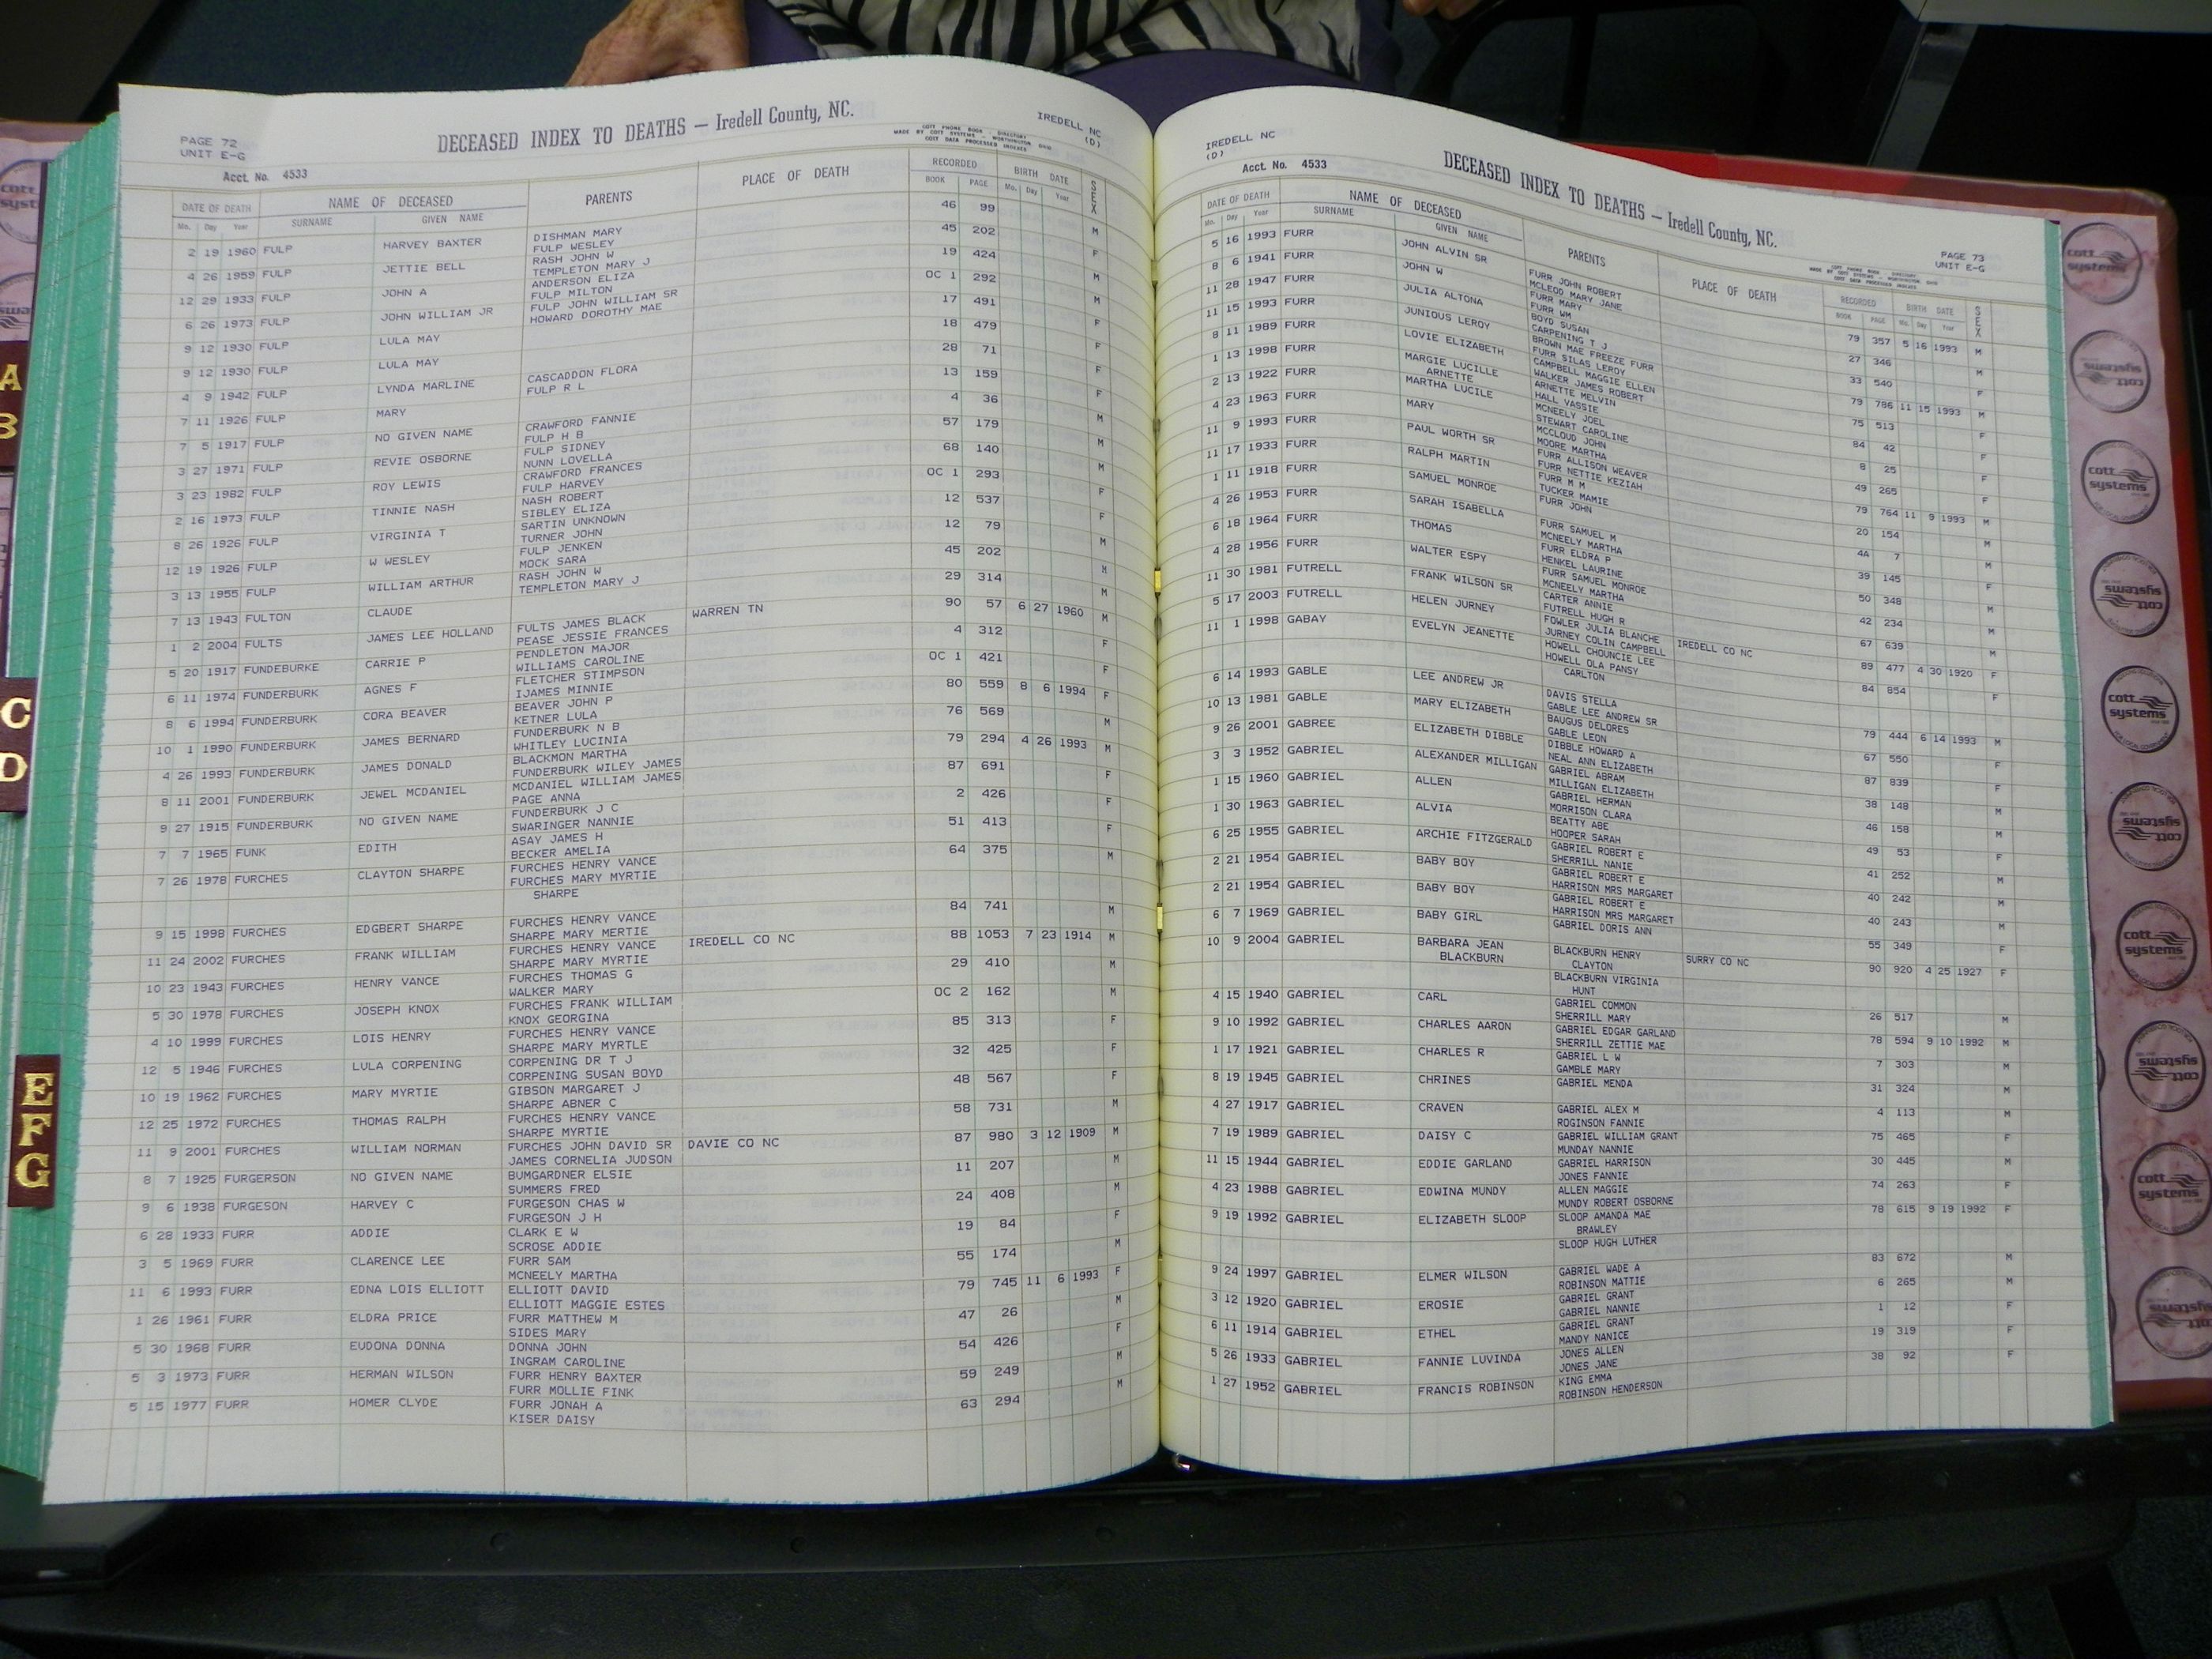 PAGE 72
UNIT E-G
DECEASED INDEX TO DEATHS — Iredell County, NC.
COTT PHONE BOOK - DIRECTORY
MADE BY COTT SYSTEMS - WORTHINGTON, OHIO
COTT DATA PROCESSED INDEXES
IREDELL NC
(D)
Acct. No. 4533
DATE OF DEATH NAME OF DECEASED PARENTS PLACE OF DEATH RECORDED BIRTH DATE SEX
Mo. Day Year SURNAME GIVEN NAME BOOK PAGE Mo. Day Year
2 19 1960 FULP HARVEY BAXTER DISHMAN MARY 46 99 M
FULP WESLEY
4 26 1959 FULP JETTIE BELL RASH JOHN W 45 202 F
TEMPLETON MARY J
12 29 1933 FULP JOHN A ANDERSON ELIZA 19 424 M
FULP MILTON
6 26 1973 FULP JOHN WILLIAM JR FULP JOHN WILLIAM SR OC 1 292 M
HOWARD DOROTHY MAE
9 12 1930 FULP LULA MAY 17 491 F
9 12 1930 FULP LULA MAY 18 479 F
4 9 1942 FULP LYNDA MARLINE CASCADDON FLORA 28 71 F
FULP R L
7 11 1926 FULP MARY 13 159 F
7 5 1917 FULP NO GIVEN NAME CRAWFORD FANNIE 4 36 M
FULP H B
3 27 1971 FULP REVIE OSBORNE FULP SIDNEY 57 179 M
NUNN LOVELLA
3 23 1982 FULP ROY LEWIS CRAWFORD FRANCES 68 140 M
FULP HARVEY
2 16 1973 FULP TINNIE NASH NASH ROBERT OC 1 293 F
SIBLEY ELIZA
8 26 1926 FULP VIRGINIA T SARTIN UNKNOWN 12 537 F
TURNER JOHN
12 19 1926 FULP W WESLEY FULP JENKEN 12 79 M
MOCK SARA
3 13 1955 FULP WILLIAM ARTHUR RASH JOHN W 45 202 M
TEMPLETON MARY J
7 13 1943 FULTON CLAUDE 29 314 M
1 2 2004 FULTS JAMES LEE HOLLAND FULTS JAMES BLACK WARREN TN 90 57 6 27 1960 M
PEASE JESSIE FRANCES
5 20 1917 FUNDEBURKE CARRIE P PENDLETON MAJOR 4 312 F
WILLIAMS CAROLINE
6 11 1974 FUNDERBURK AGNES F FLETCHER STIMPSON OC 1 421 F
IJAMES MINNIE
8 6 1994 FUNDERBURK CORA BEAVER BEAVER JOHN P 80 559 8 6 1994 F
KETNER LULA
10 1 1990 FUNDERBURK JAMES BERNARD FUNDERBURK N B 76 569 M
WHITLEY LUCINIA
4 26 1993 FUNDERBURK JAMES DONALD BLACKMON MARTHA 79 294 4 26 1993 M
FUNDERBURK WILEY JAMES
8 11 2001 FUNDERBURK JEWEL MCDANIEL MCDANIEL WILLIAM JAMES 87 691 F
PAGE ANNA
9 27 1915 FUNDERBURK NO GIVEN NAME FUNDERBURK J C 2 426 F
SWARINGER NANNIE
7 7 1965 FUNK EDITH ASAY JAMES H 51 413 F
BECKER AMELIA
7 26 1978 FURCHES CLAYTON SHARPE FURCHES HENRY VANCE 64 375 M
FURCHES MARY MYRTIE
SHARPE
9 15 1998 FURCHES EDGBERT SHARPE FURCHES HENRY VANCE 84 741 M
SHARPE MARY MERTIE
11 24 2002 FURCHES FRANK WILLIAM FURCHES HENRY VANCE IREDELL CO NC 88 1053 7 23 1914 M
SHARPE MARY MYRTIE
10 23 1943 FURCHES HENRY VANCE FURCHES THOMAS G 29 410 M
WALKER MARY
5 30 1978 FURCHES JOSEPH KNOX FURCHES FRANK WILLIAM OC 2 162 M
KNOX GEORGINA
4 10 1999 FURCHES LOIS HENRY FURCHES HENRY VANCE 85 313 F
SHARPE MARY MYRTLE
12 5 1946 FURCHES LULA CORPENING CORPENING DR T J 32 425 F
CORPENING SUSAN BOYD
10 19 1962 FURCHES MARY MYRTIE GIBSON MARGARET J 48 567 F
SHARPE ABNER C
12 25 1972 FURCHES THOMAS RALPH FURCHES HENRY VANCE 58 731 M
SHARPE MYRTIE
11 9 2001 FURCHES WILLIAM NORMAN FURCHES JOHN DAVID SR DAVIE CO NC 87 980 3 12 1909 M
JAMES CORNELIA JUDSON
8 7 1925 FURGERSON NO GIVEN NAME BUMGARDNER ELSIE 11 207 M
SUMMERS FRED
9 6 1938 FURGESON HARVEY C FURGESON CHAS W 24 408 M
FURGESON J H
6 28 1933 FURR ADDIE CLARK E W 19 84 F
SCROSE ADDIE
3 5 1969 FURR CLARENCE LEE FURR SAM 55 174 M
MCNEELY MARTHA
11 6 1993 FURR EDNA LOIS ELLIOTT ELLIOTT DAVID 79 745 11 6 1993 F
ELLIOTT MAGGIE ESTES
1 26 1961 FURR ELDRA PRICE FURR MATTHEW M 47 26 M
SIDES MARY
5 30 1968 FURR EUDONA DONNA DONNA JOHN 54 426 F
INGRAM CAROLINE
5 3 1973 FURR HERMAN WILSON FURR HENRY BAXTER 59 249 M
FURR MOLLIE FINK
5 15 1977 FURR HOMER CLYDE FURR JONAH A 63 294 M
KISER DAISY
IREDELL NC
(D)
DECEASED INDEX TO DEATHS — Iredell County, NC.
Acct. No. 4533
COTT PHONE BOOK - DIRECTORY
MADE BY COTT SYSTEMS - WORTHINGTON, OHIO
COTT DATA PROCESSED INDEXES
PAGE 73
UNIT E-G
DATE OF DEATH NAME OF DECEASED PARENTS PLACE OF DEATH RECORDED BIRTH DATE SEX
Mo. Day Year SURNAME GIVEN NAME BOOK PAGE Mo. Day Year
5 16 1993 FURR JOHN ALVIN SR FURR JOHN ROBERT 79 357 5 16 1993 M
MCLEOD MARY JANE
8 6 1941 FURR JOHN W FURR MARY 27 346 M
FURR WM
11 28 1947 FURR JULIA ALTONA BOYD SUSAN 33 540
CARPENING T J
11 15 1993 FURR JUNIOUS LEROY BROWN MAE FREEZE FURR 79 786 11 15 1993 M
FURR SILAS LEROY
8 11 1989 FURR LOVIE ELIZABETH CAMPBELL MAGGIE ELLEN 75 513 F
WALKER JAMES ROBERT
1 13 1998 FURR MARGIE LUCILLE ARNETTE MELVIN 84 42 F
ARNETTE HALL VASSIE
2 13 1922 FURR MARTHA LUCILE MCNEELY JOEL 8 25 F
STEWART CAROLINE
4 23 1963 FURR MARY MCCLOUD JOHN 49 265 F
MOORE MARTHA
11 9 1993 FURR PAUL WORTH SR FURR ALLISON WEAVER 79 764 11 9 1993 M
FURR NETTIE KEZIAH
11 17 1933 FURR RALPH MARTIN FURR M M 20 154 M
TUCKER MAMIE
1 11 1918 FURR SAMUEL MONROE FURR JOHN 4A 7 M
4 26 1953 FURR SARAH ISABELLA FURR SAMUEL M 39 145 F
MCNEELY MARTHA
6 18 1964 FURR THOMAS FURR ELDRA P 50 348 M
HENKEL LAURINE
4 28 1956 FURR WALTER ESPY FURR SAMUEL MONROE 42 234 M
MCNEELY MARTHA
11 30 1981 FUTRELL FRANK WILSON SR CARTER ANNIE 67 639 M
FUTRELL HUGH R
5 17 2003 FUTRELL HELEN JURNEY FOWLER JULIA BLANCHE IREDELL CO NC 89 477 4 30 1920 F
JURNEY COLIN CAMPBELL
11 1 1998 GABAY EVELYN JEANETTE HOWELL CHOUNCIE LEE 84 854 F
HOWELL OLA PANSY
CARLTON
6 14 1993 GABLE LEE ANDREW JR DAVIS STELLA 79 444 6 14 1993 M
GABLE LEE ANDREW SR
10 13 1981 GABLE MARY ELIZABETH BAUGUS DELORES 67 550 F
GABLE LEON
9 26 2001 GABREE ELIZABETH DIBBLE DIBBLE HOWARD A 87 839 F
NEAL ANN ELIZABETH
3 3 1952 GABRIEL ALEXANDER MILLIGAN GABRIEL ABRAM 38 148 M
MILLIGAN ELIZABETH
1 15 1960 GABRIEL ALLEN GABRIEL HERMAN 46 158 M
MORRISON CLARA
1 30 1963 GABRIEL ALVIA BEATTY ABE 49 53 F
HOOPER SARAH
6 25 1955 GABRIEL ARCHIE FITZGERALD GABRIEL ROBERT E 41 252 M
SHERRILL NANIE
2 21 1954 GABRIEL BABY BOY GABRIEL ROBERT E 40 242 M
HARRISON MRS MARGARET
2 21 1954 GABRIEL BABY BOY GABRIEL ROBERT E 40 243 M
HARRISON MRS MARGARET
6 7 1969 GABRIEL BABY GIRL GABRIEL DORIS ANN 55 349 F
10 9 2004 GABRIEL BARBARA JEAN BLACKBURN HENRY SURRY CO NC 90 920 4 25 1927 F
BLACKBURN CLAYTON
BLACKBURN VIRGINIA
HUNT
4 15 1940 GABRIEL CARL GABRIEL COMMON 26 517 M
SHERRILL MARY
9 10 1992 GABRIEL CHARLES AARON GABRIEL EDGAR GARLAND 78 594 9 10 1992 M
SHERRILL ZETTIE MAE
1 17 1921 GABRIEL CHARLES R GABRIEL L W 7 303 M
GAMBLE MARY
8 19 1945 GABRIEL CHRINES GABRIEL MENDA 31 324 M
4 27 1917 GABRIEL CRAVEN GABRIEL ALEX M 4 113 M
ROGINSON FANNIE
7 19 1989 GABRIEL DAISY C GABRIEL WILLIAM GRANT 75 465 F
MUNDAY NANNIE
11 15 1944 GABRIEL EDDIE GARLAND GABRIEL HARRISON 30 445 M
JONES FANNIE
4 23 1988 GABRIEL EDWINA MUNDY ALLEN MAGGIE 74 263 F
MUNDY ROBERT OSBORNE
9 19 1992 GABRIEL ELIZABETH SLOOP SLOOP AMANDA MAE 78 615 9 19 1992 F
BRAWLEY
SLOOP HUGH LUTHER
9 24 1997 GABRIEL ELMER WILSON GABRIEL WADE A 83 672 M
ROBINSON MATTIE
3 12 1920 GABRIEL EROSIE GABRIEL GRANT 6 265 M
GABRIEL NANNIE
6 11 1914 GABRIEL ETHEL GABRIEL GRANT 1 12 F
MANDY NANICE
5 26 1933 GABRIEL FANNIE LUVINDA JONES ALLEN 19 319 F
JONES JANE
1 27 1952 GABRIEL FRANCIS ROBINSON KING EMMA 38 92 F
ROBINSON HENDERSON
A
B
C
D
E
F
G
cott systems
cott systems
cott systems
cott systems
cott systems
cott systems
cott systems
cott systems
cott systems
cott systems